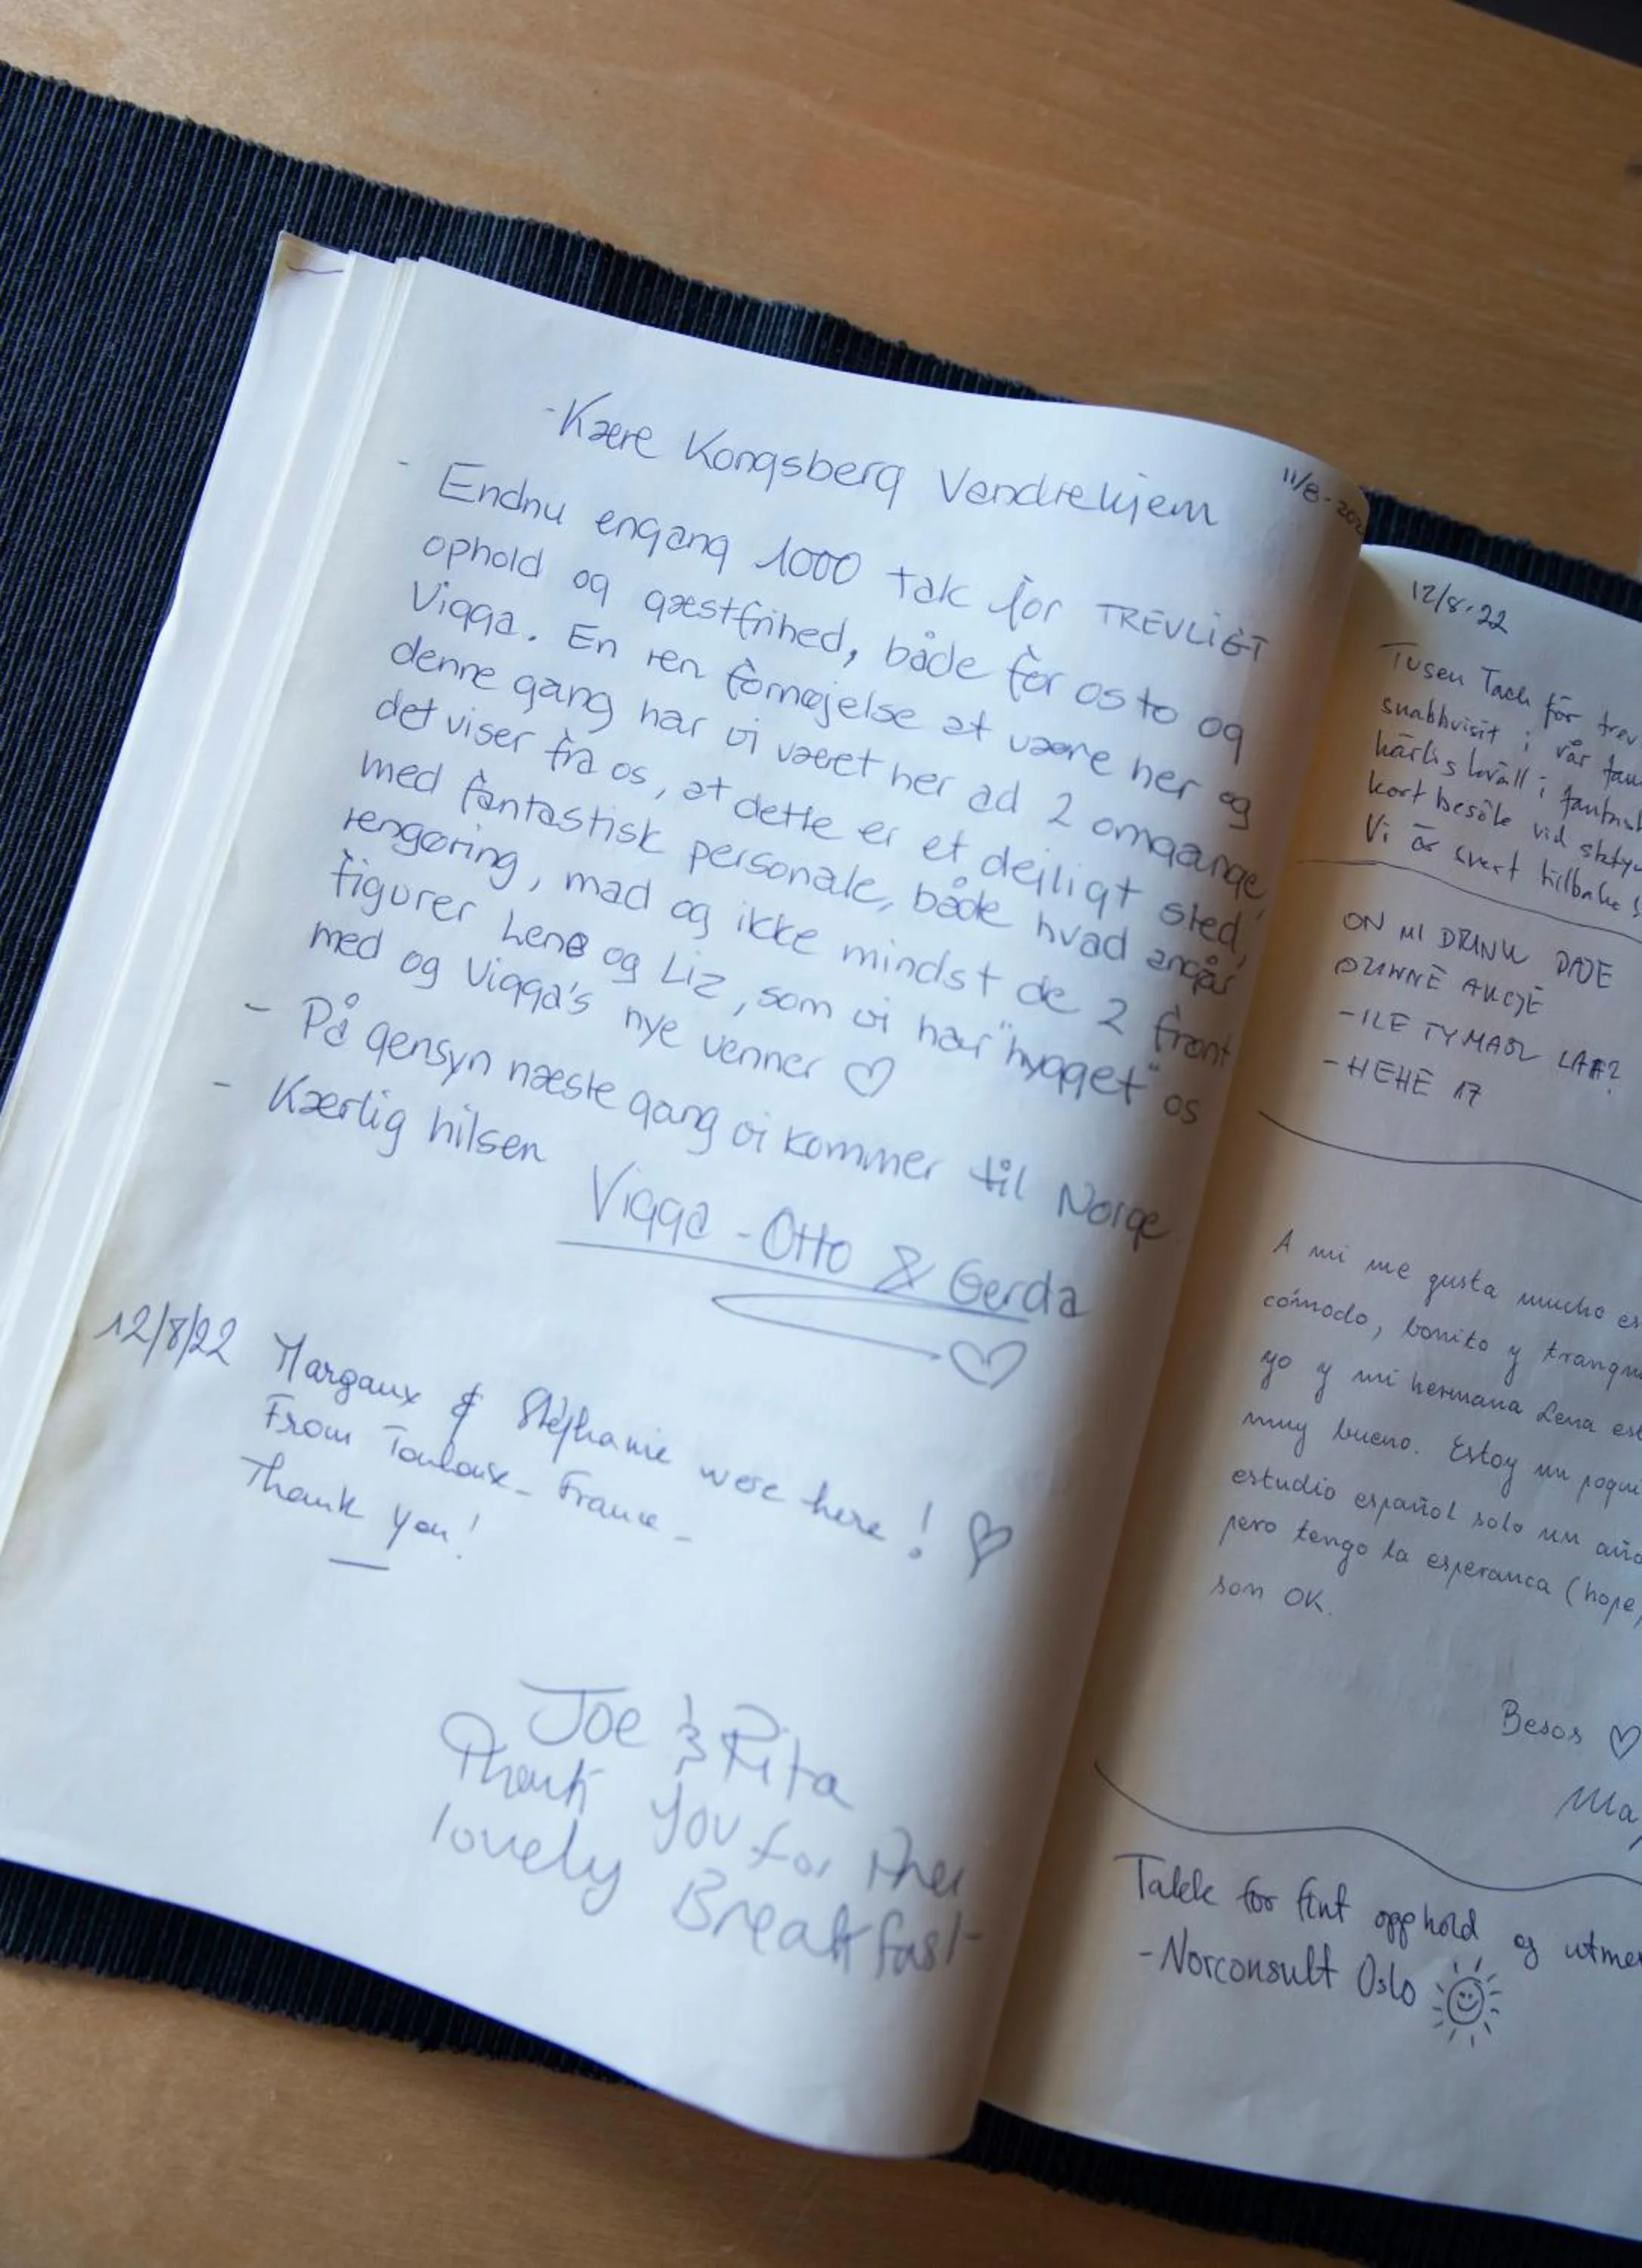 11/8-202
-Kære Kongsberg Vandrehjem
- Endnu engang 1000 tak for TREVLIGT
ophold og gæstfrihed, både for os to og
Vigga. En ren fornøjelse at være her og
denne gang har vi været her ad 2 omgange,
det viser fra os, at dette er et dejligt sted,
med fantastisk personale, både hvad angår
rengøring, mad og ikke mindst de 2 front
figurer Lene og Liz, som vi har "hygget" os
med og Vigga's nye venner ♡
- På gensyn næste gang vi kommer til Norge
- Kærlig hilsen
Vigga - Otto & Gerda
♡
12/8/22 Margaux & Stéphanie were here! ♡
From Toulouse - France -
Thank you!
Joe & Rita
Thank you for the
lovely Breakfast
12/8-22
Tusen Tack för trev
snabbvisit i vår fam
härlig kväll i fantast
kort besök vid
Vi är svert tilbake
ON MI DRINK DAJE
DZIWNE AKCJE
-ILE TY MASZ LAT?
-HEHE 17
A mi me gusta mucho es
cómodo, bonito y tranqu
yo y mi hermana Lena est
muy bueno. Estoy un poqui
estudio español solo un año
pero tengo la esperanca (hope,
son OK.
Besos ♡
Ma
Takk for fint opphold og utme
-Norconsult Oslo